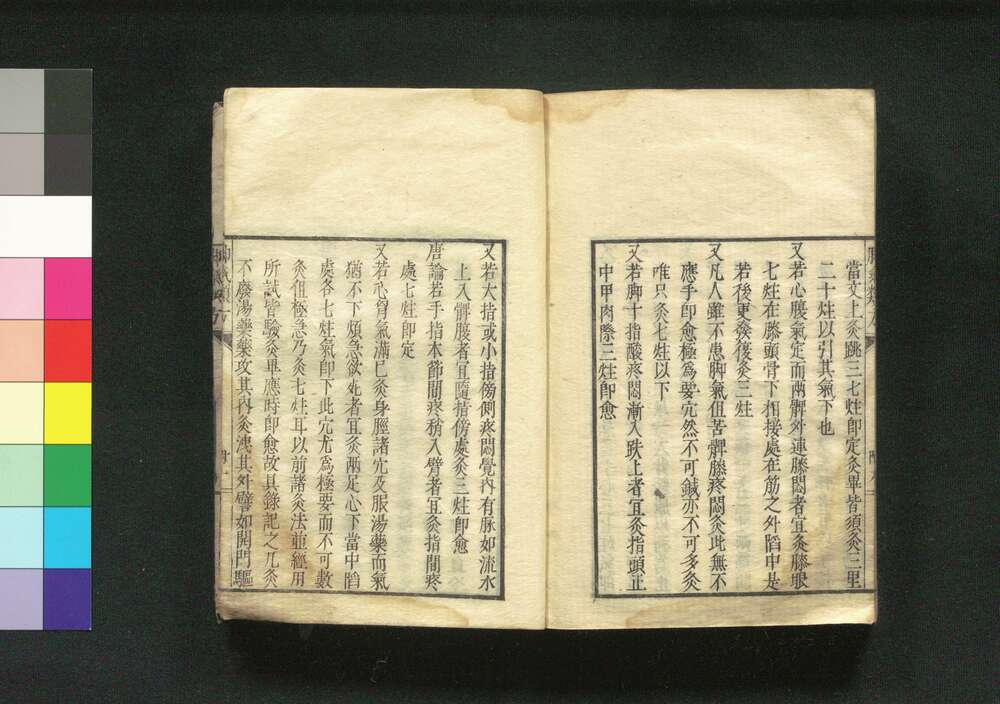 當文上灸跳三七炷即定灸畢皆須灸三里
二十炷以引其氣下也
又若心腹氣定而兩髀外連膝悶者宜灸膝眼
七炷在膝頭骨下相接處在筋之外䧟中是
若後更發復灸三炷
又凡人雖不患脚氣但苦髀膝疼悶灸此無不
應手即愈極為要宂然不可鍼亦不可多灸
唯只灸七炷以下
又若脚十指酸疼悶漸入趺上者宜灸指頭正
中甲肉際三炷即愈
又若大指或小指傍側疼悶覺內有脉如流水
上入髀腹者宜隨指傍處灸三炷即愈
唐論若手指本節間疼痛入臂者宜灸指間疼
處七炷即定
又若心胷氣滿已灸身脛諸宂及服湯藥而氣
猶不下煩急欲死者宜灸兩足心下當中䧟
處各七炷氣即下此宂尤為極要而不可數
灸但極急乃灸七炷耳以前諸灸法並經用
所試皆驗灸畢應時即愈故具錄記之凡灸
不廢湯藥藥攻其內灸洩其外譬如開門驅